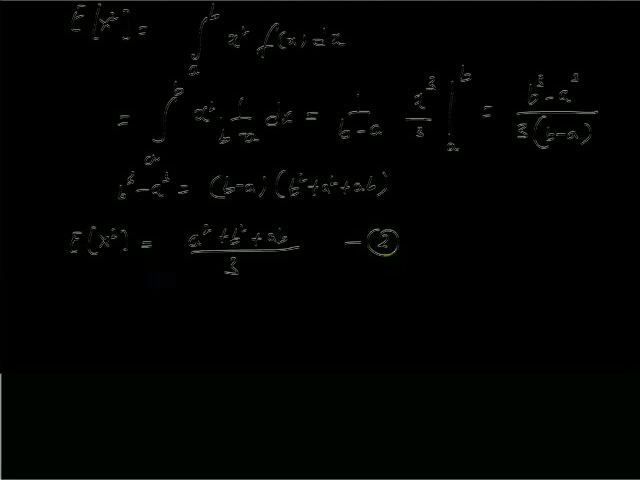 E[x²] = ∫ₐᵇ x² f(x) dx
= ∫ₐᵇ x² 1/(b-a) dx = 1/(b-a) x³/3 |ₐᵇ = (b³-a³)/(3(b-a))
b³-a³ = (b-a)(b²+a²+ab)
E[x²] = (a²+b²+ab)/3 — ②